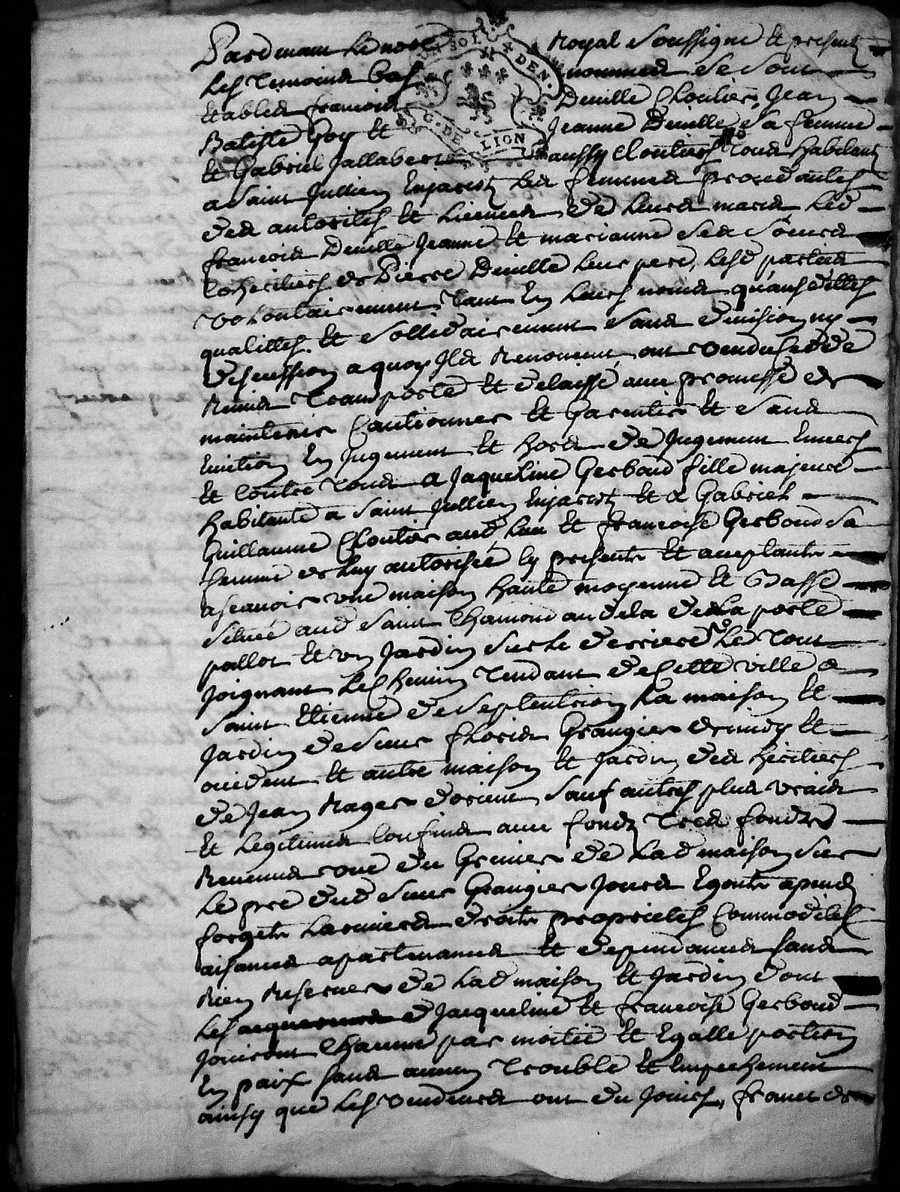 Pardevant Le nore Royal Soussigné Et presents
Les Temoins bas nommés se sont
Etablis francois Deville Cloutier Jean
Batiste Goy Et Jeanne Deville sa femme
Et Gabriel Jallabert aussy Cloutiers tous habitants
a Saint Jullien Enjarest Les femmes procedantes
des autorités Et Licences de Leurs maris Lesd
francois Deville Jeanne Et marianne ses Soeurs
Coheritiers de Pierre Deville Leur pere, Lesd parties
volontairement tant En Leurs noms qu'ausd'elles
qualittes Et Sollidairement Sans division ny
discussion a quoy Ils Renoncent ont vendu ceddé
Remis Transporté Et delaissé avec promesse de
maintenir Cautionner Et Garentir Et Sans
Eviction En Jugement Et hors de Jugement Envers
Et Contre tous a Jaqueline Gerboud fille majeure
habitante a Saint Jullien Enjarest Et a Gabriel
Guillaume Cloutier aud Lieu Et francoise Gerboud Sa
femme de Luy autorisée Cy presents Et acceptants
ascavoir une maison haute moyenne Et Basse
Située aud Saint Chamond audela de La porte
pallot Et un Jardin Sur Le derriere Le tout
Joignant Le Chemin Tendant de Cette ville a
Saint Etienne de Septentrion La maison Et
Jardin de Sieur Floris Grangier de midy Et
occident Et autre maison Et Jardin des héritiers
de Jean Roger d'orient Sauf autres plus vrais
Et Legitimes Confins avec fonds tres fonds
Revenus vue du Grenier de Lad maison Sur
Le pré dud Sieur Grangier Jours Egouts apends
forgets Larmiers droits proprietés Commodités
aisances apartenances Et dependances Sans
Rien Reserver de Lad maison Et Jardin dont
Les d Jacqueline Et francoise Gerboud
Jouiront Chacune par moitié Et Egalle portion
En paix Sans aucun trouble Et Empechement
ainsy que Les vendeurs ont du Jouir, francs de
SOLS
G. DE LION
DEN.